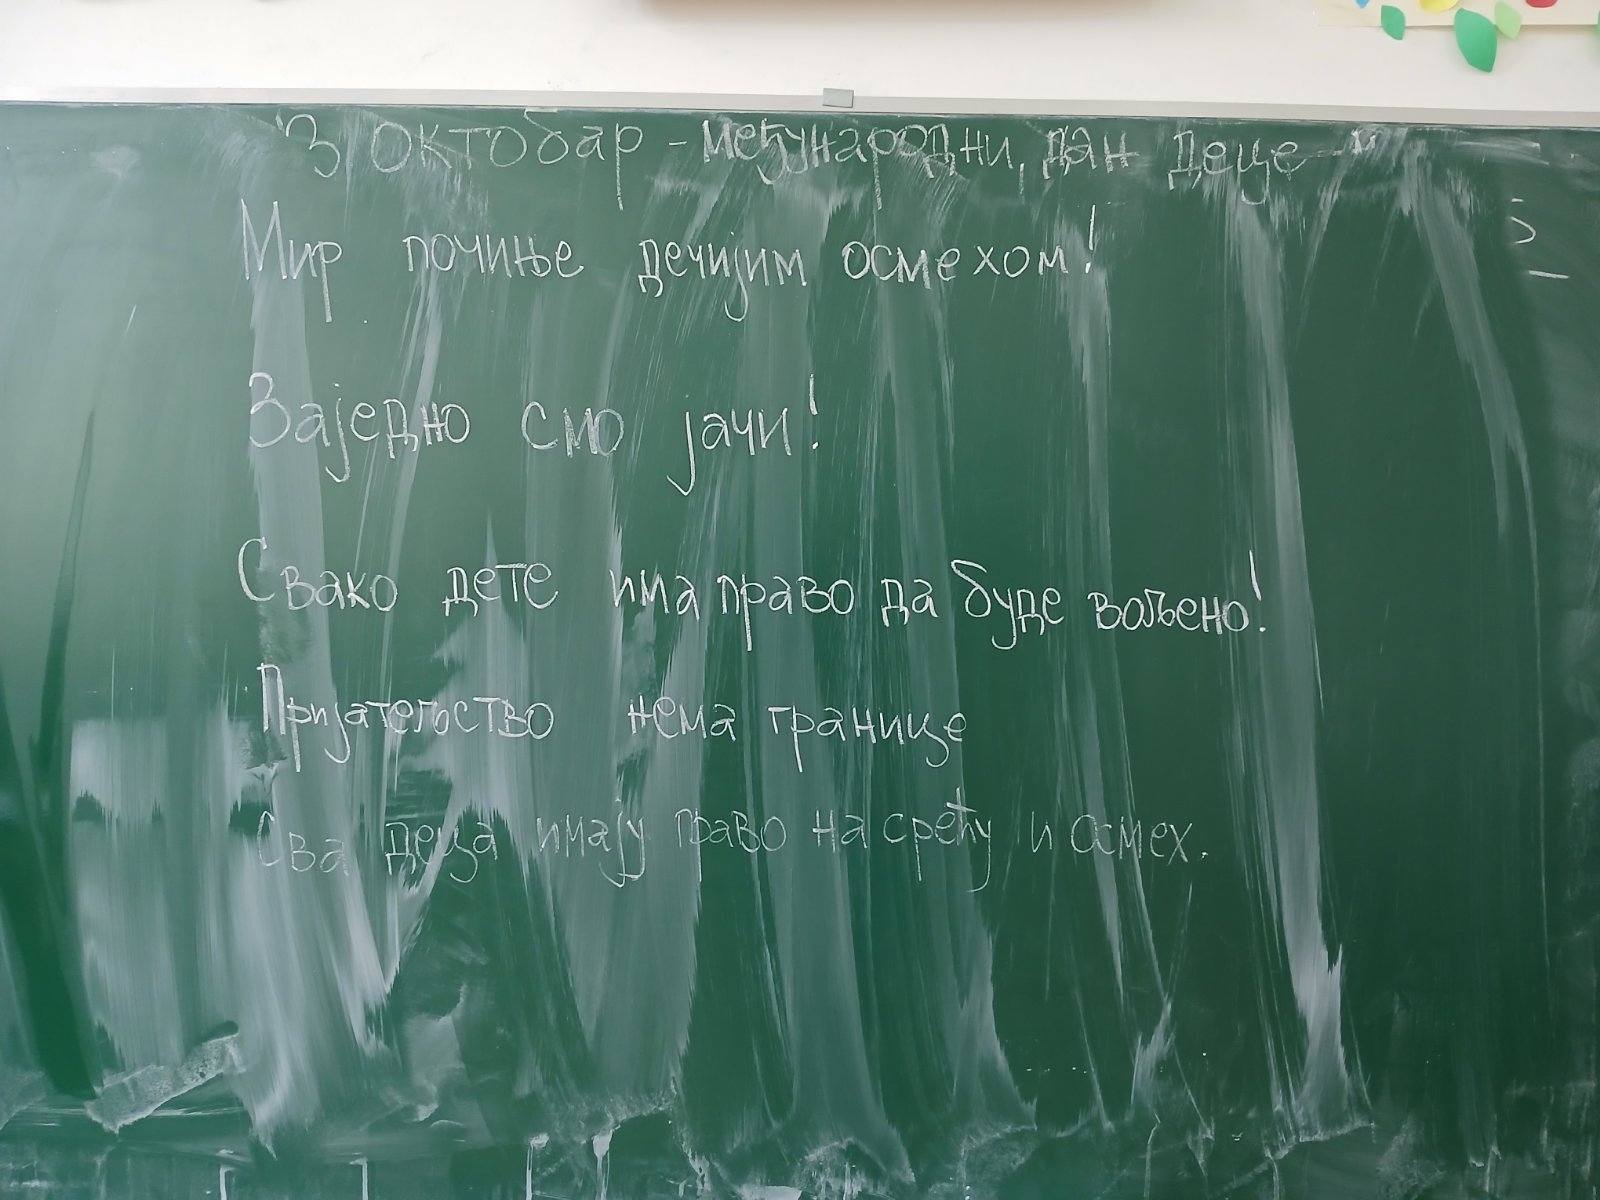 "3 октобар - међународни, дан деце -"
Мир почиње дечијим осмехом!
Заједно смо јачи!
Свако дете има право да буде вољено!
Пријатељство нема границе
Сва деца имају право на срећу и осмех.